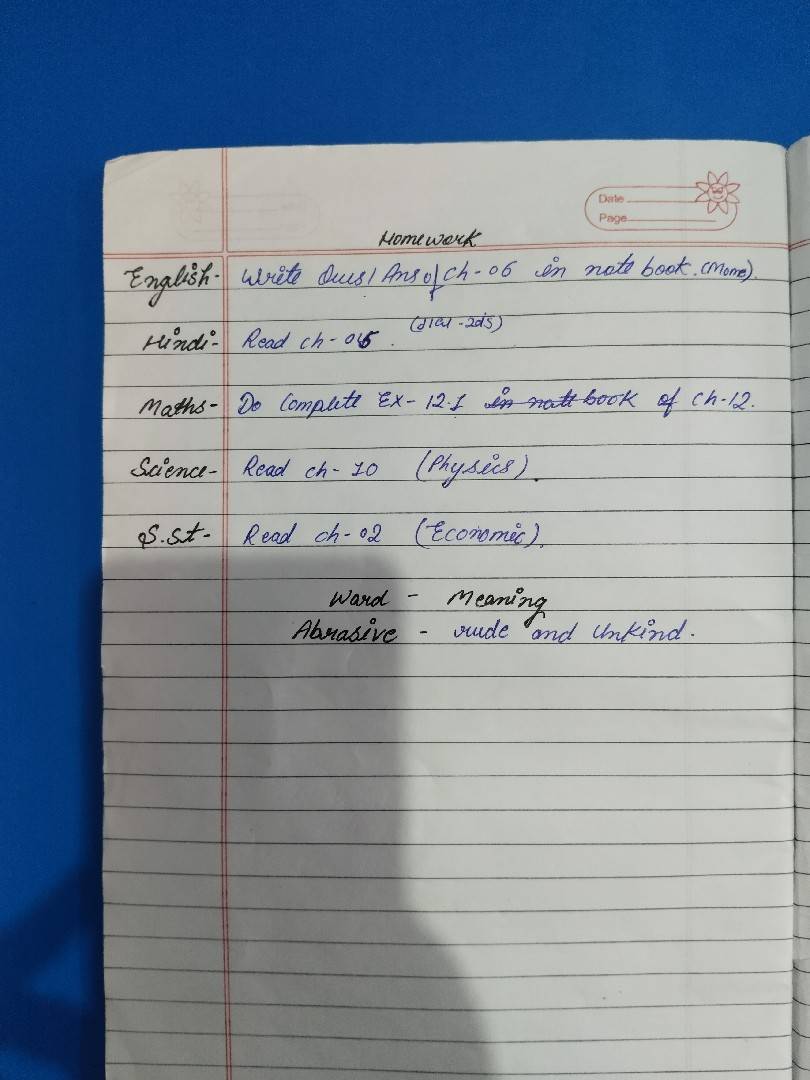 Date
Page
Homework
English- Write Ques/Ans of Ch-06 in note book. (Mome).
Hindi- Read ch-05.
Maths- Do Complete Ex-12.1 in natt book of Ch-12.
Science- Read ch-10 (Physics).
S.St- Read ch-02 (Economic).
Word - Meaning
Abrasive - rude and Unkind.